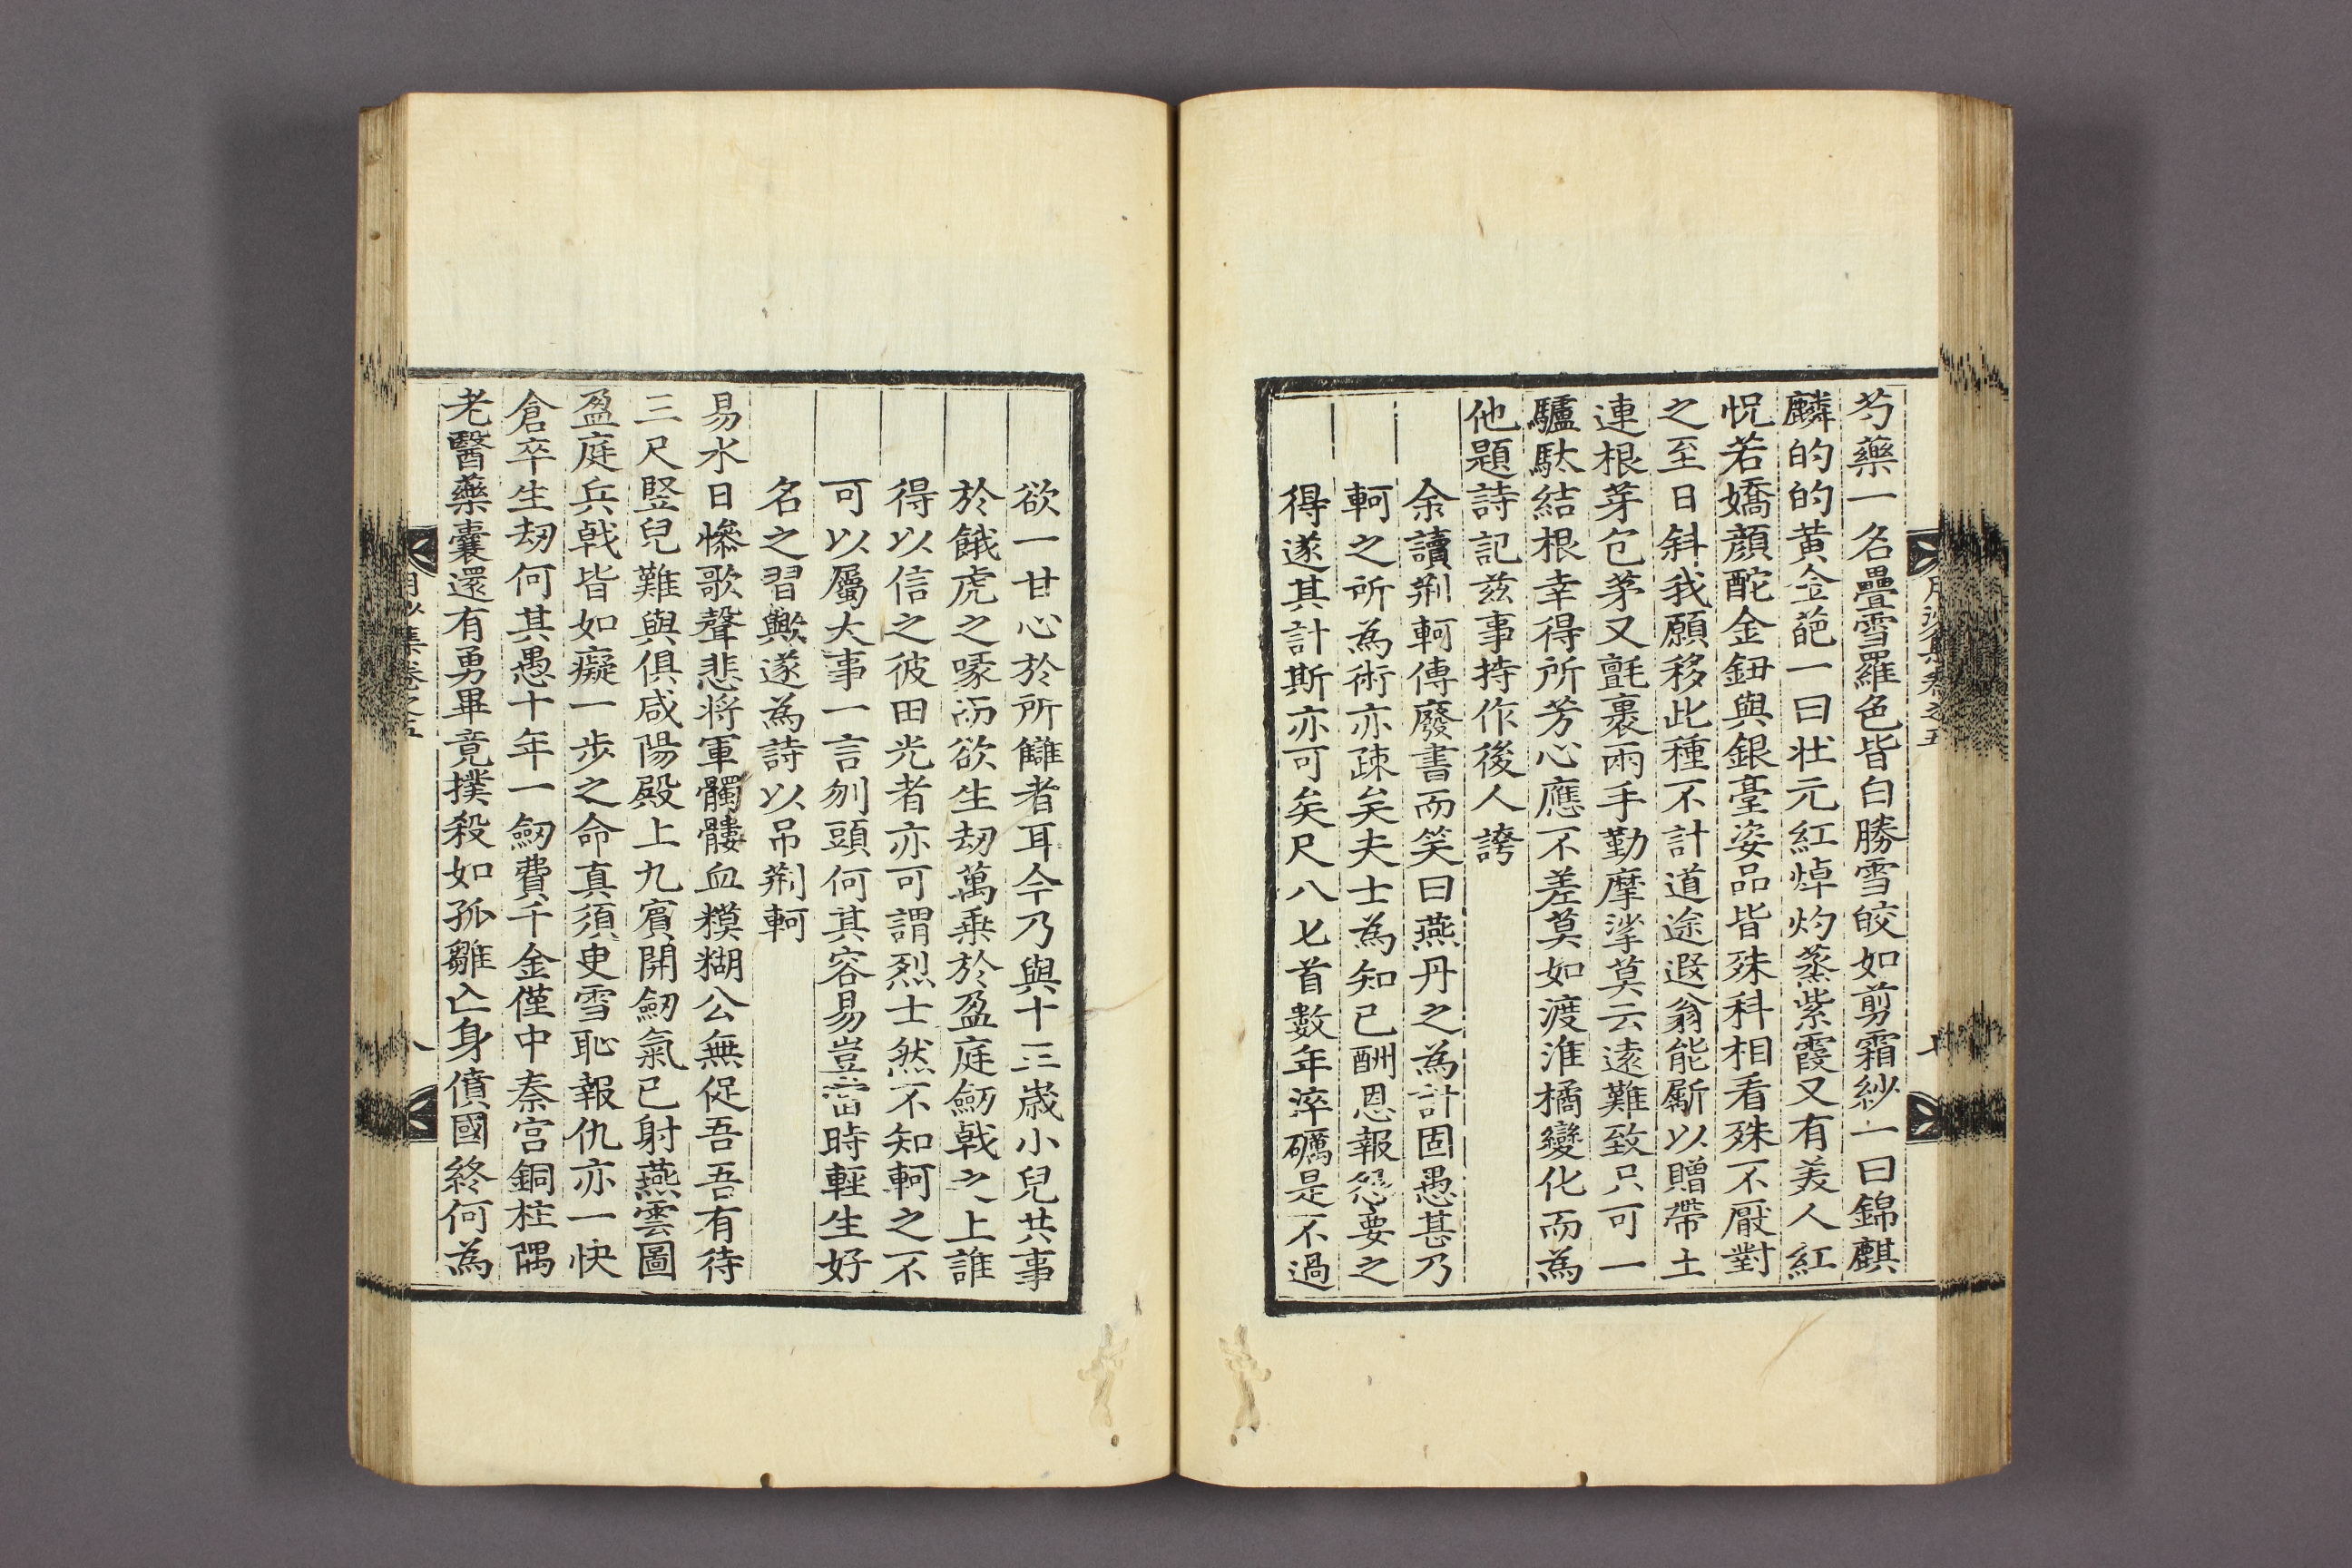 芍藥一名疊雪羅色皆白勝雪皎如剪霜紗一曰錦麒
麟的的黃金葩一曰壯元紅焯灼蒸紫霞又有美人紅
怳若嬌顏酡金鈕與銀臺姿品皆殊科相看殊不厭對
之至日斜我願移此種不計道途遐翁能斸以贈帶土
連根芽包茅又氈裹兩手勤摩挲莫云遠難致只可一
驢馱結根幸得所芳心應不差莫如渡淮橘變化而為
他題詩記茲事持作後人誇
余讀荊軻傳廢書而笑曰燕丹之為計固愚甚乃
軻之所為術亦疎矣夫士為知己酬恩報怨要之
得遂其計斯亦可矣尺八匕首數年淬礪是不過
欲一甘心於所讎者耳今乃與十三歲小兒共事
於餓虎之喙而欲生劫萬乘於盈庭劒戟之上誰
得以信之彼田光者亦可謂烈士然不知軻之不
可以屬大事一言刎頭何其容易豈當時輕生好
名之習歟遂為詩以吊荊軻
易水日慘歌聲悲將軍髑髏血糢糊公無促吾吾有待
三尺竪兒難與俱咸陽殿上九賓開劒氣已射燕雲圖
盈庭兵戟皆如癡一步之命真須臾雪恥報仇亦一快
倉卒生劫何其愚十年一劒費千金僅中秦宮銅柱隅
老醫藥囊還有勇畢竟撲殺如孤雛亡身僨國終何為